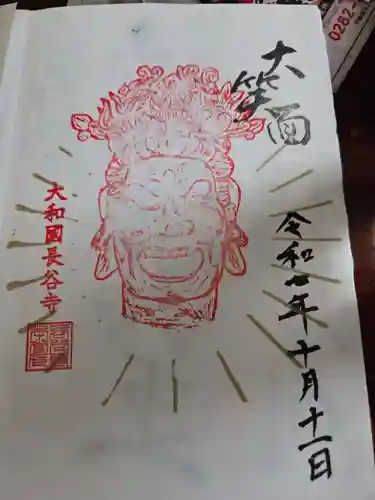 大笑面
令和七年十月十一日
大和國長谷寺
0282-